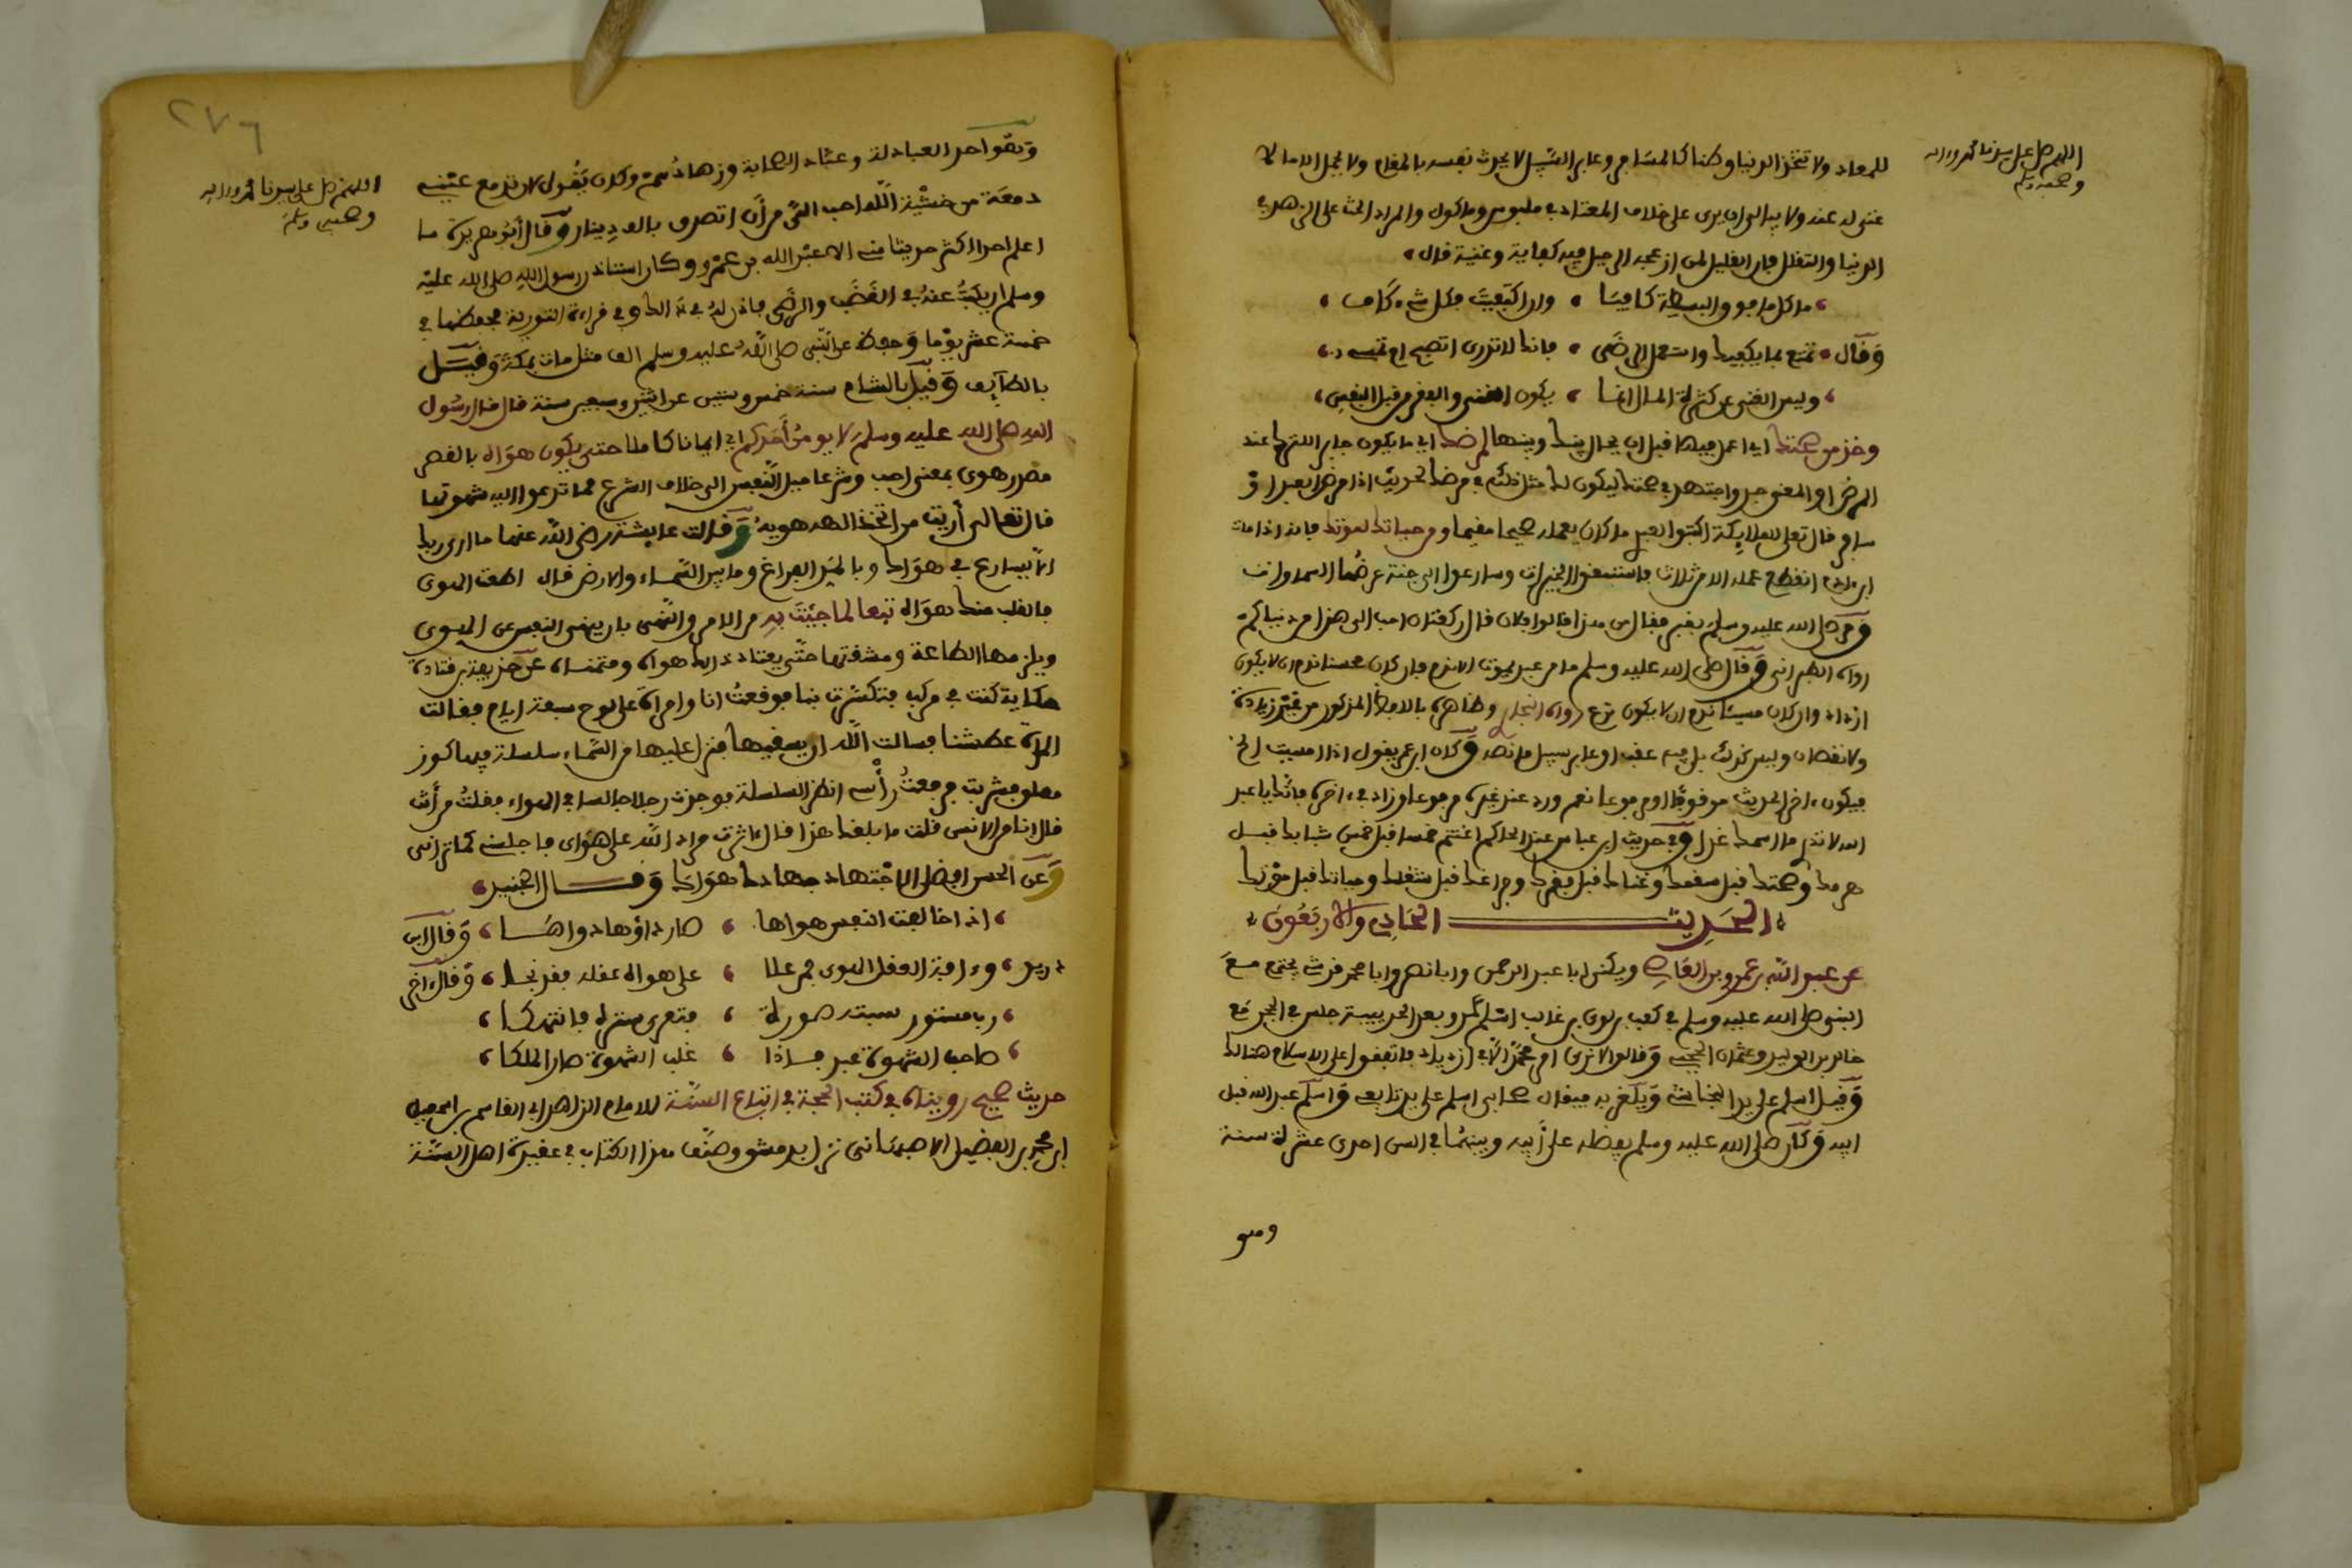 اللهم صل على سيدنا محمد وءاله
وصحبه وسلم
للمعاد ولا تتخذ الدنيا وطنا كالمسافر وعابر السبيل لا يحدث نفسه بالمقام ولا يحمل الا ما لا
غنى له عنه ولا يبالى ان يرى على خلاف المعتاد في ملبوس وماكول والمراد الحث على الزهد في
الدنيا والتقلل فان القليل لمن
ما كل ما فوق البسيطة كافيا ، وان اكتفيت فكل شيء كاف ،
وقال ، تمتع بما يكفيك واستعمل الرضى ، فانك لا تدرى اتصبح ام تمسى ،
، وليس الغنى عن كثرة المال انما ، يكون الغنى والفقر من قبل النفس ،
وخذ من صحتك اي اعمل فيها قبل ان يحال بينك وبينها لمرضك اي ما يكون
المرض او المعنى جد واجتهد في صحتك ليكون لك مثل ذلك في مرضك لحديث اذا مرض العبد او
سافر قال تعلى للملايكة اكتبوا لعبدي ما كان يعمله صحيحا مقيما ومن حياتك لموتك فانه اذا مات
ابن ءادم انقطع عمله الا من ثلاث فاستبقوا الخيرات وسارعوا الى جنة عرضها السماوات
ومر صلى الله عليه وسلم بقبر فقال من هذا قالوا فلان فقال ركعتان احب الى هذا من دنياكم
رواه الطبرانى وقال صلى الله عليه وسلم ما من عبد يموت الا ندم فان كان محسنا ندم ان لا يكون
ازداد وان كان مسيئا ندم ان لا يكون نزع رواه وظاهره بالامر المذكور من غير زيادة
ولا نقصان وليس كذلك بل فيه عقب او عابر سبيل ما نصه وكان ابن عمر يقول اذا امسيت الخ
فيكون ءاخر الحديث موقوفا لا مرفوعا نعم ورد عند غيره مرفوعا وزاد في ءاخره فانك يا عبد
الله لا تدرى ما اسمك غدا وفي حديث ابن عباس عند الحاكم اغتنم خمسا قبل خمس شبابك قبل
هرمك وصحتك قبل سقمك وغناك قبل فقرك وفراغك قبل شغلك وحياتك قبل موتك
الحديث الحادي والاربعون
عن عبد الله بن عمرو بن العاصي ويكنى ابا عبد الرحمن وابا نصر وابا محمد قرشى يجتمع مع
النبى صلى الله عليه وسلم في كعب بن لؤى بن غالب اسلم عمرو بعد الحديبية
خالد بن الوليد وعثمان الحجبي وقالوا الا ترى امر محمد الا في ازدياد فاتفقوا على الاسلام هنالك
وقيل اسلم على يد النجاشى ويلغز به فيقال صحابى اسلم على يد تابعي واسلم عبد الله قبل
ابيه وكان صلى الله عليه وسلم يفضله على أبيه وبينهما في السن احدى عشرة سنة
وهو
٢٧٦
اللهم صل على سيدنا محمد وءاله
وصحبه وسلم
وهو احد العبادلة وعباد الصحابة وزهادهم وكان يقول لان تدمع عيني
دمعة من خشية الله احب الي من أن اتصدق بالف دينار وقال أبو هريرة ما
اعلم احدا اكثر حديثا مني الا عبد الله بن عمرو وكان استاذن رسول الله صلى الله عليه
وسلم ان يكتب عنه في الغضب والرضى فاذن له في ذلك وفي قراءة التورية فحفظها في
خمسة عشر يوما وحفظ عن النبى صلى الله عليه وسلم الف مثل مات بمكة وقيل
بالطايف وقيل بالشام سنة خمس وستين عن اثنين وسبعين سنة قال قال رسول
الله صلى الله عليه وسلم لا يومن أحدكم اي ايمانا كاملا حتى يكون هواه بالقصر
مصدر هوى بمعنى احب وشرعا ميل النفس الى خلاف الشرع مما تدعوا اليه شهوتها
قال تعالى أريت من اتخذ الهه هويه وقالت عايشة رضى الله عنها ما ارى ربك
الا يسارع في هواك وبالمد الفراغ وما بين السماء والارض قال اطعت الهوى
فالقلب هواه تبعا لما جئت به من الامر والنهى بان ينهى النفس عن الهوى
ويلزمها الطاعة ومشقتها حتى يعتاد ذلك هواه ومتمناه عن حذيفة بن قتادة
حكاية كنت في مركب فتكسرت بنا فوقعت انا وامراة على لوح سبعة ايام فقالت
المراة عطشنا فسالت الله ان يسقيها فنزل عليها من السماء سلسلة فيها كوز
معلق فشربت فرفعت رأسي انظر السلسلة فوجدت رجلا جالسا في الهواء فقلت من أنت
قال انا من الانس قلت ما بلغك هذا قال ءاثرت مراد الله على هواى فاجلسني كما ترانى
وعن الحسن افضل الاجتهاد جهادك هواك وقال الجنيد
، اذا خالفت النفس هواها ، صار داؤها دواها ، وقال ابن
دريد ، وءافة العقل الهوى فمن علا ، على هواه عقله فقد نجا ، وقال ءاخر
، رب مستور سبته صورة ، فتعرى ستره فانتهكا ،
، صاحب الشهوة عبد فاذا ، غلب الشهوة صار الملكا ،
حديث صحيح رويناه في كتب الحجة في اتباع السنة للامام الزاهد ابى القاسم بن اسمعيل
ابن محمد بن الفضل الاصبهانى نزل بدمشق وصنف هذا الكتاب في عقيدة اهل السنة